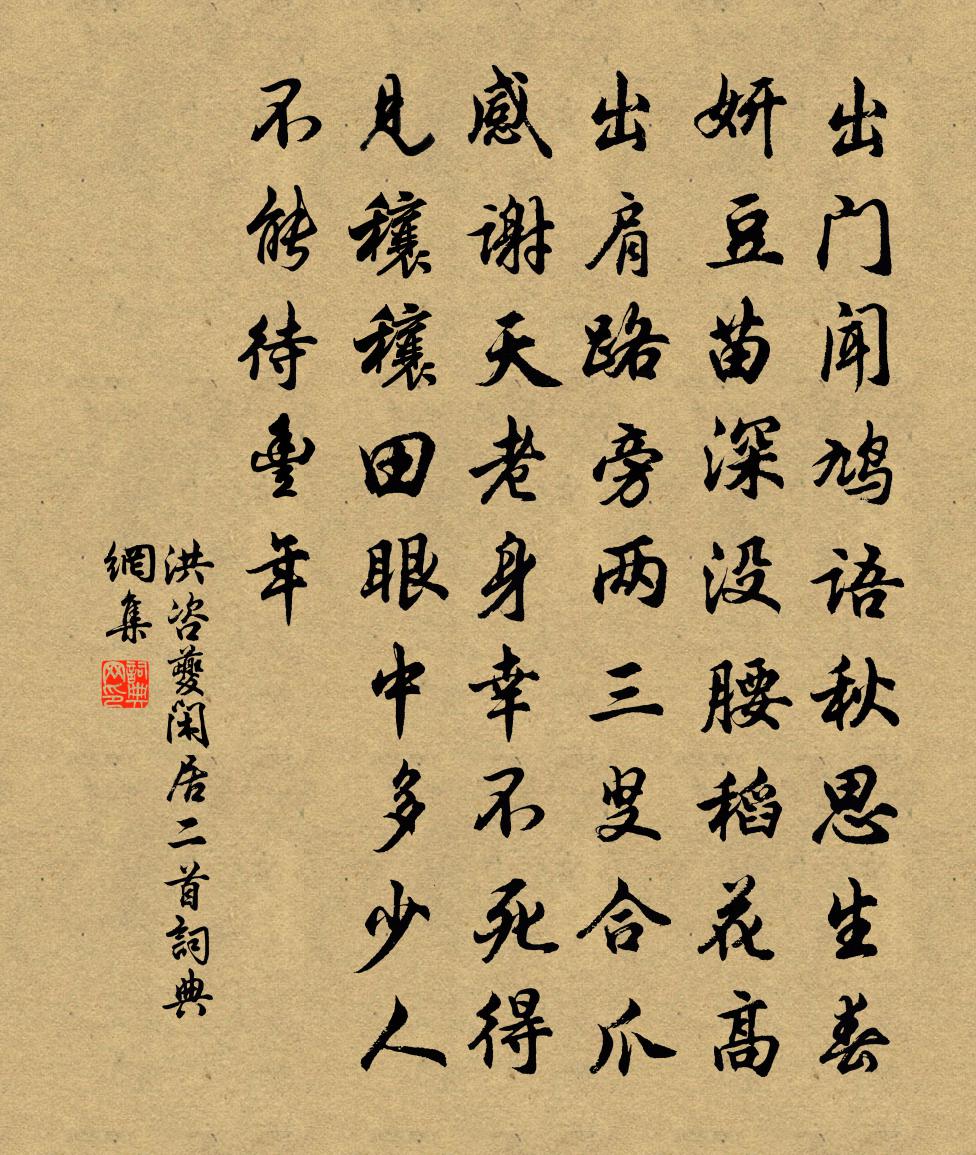 出门闻鸠语秋思生春
妍豆苗深没腰稻花高
出肩路旁两三叟合爪
感谢天老身幸不死得
见穰穰田眼中多少人
不能待豐年
洪咨夔闲居二首詞典
網集
詞典網印